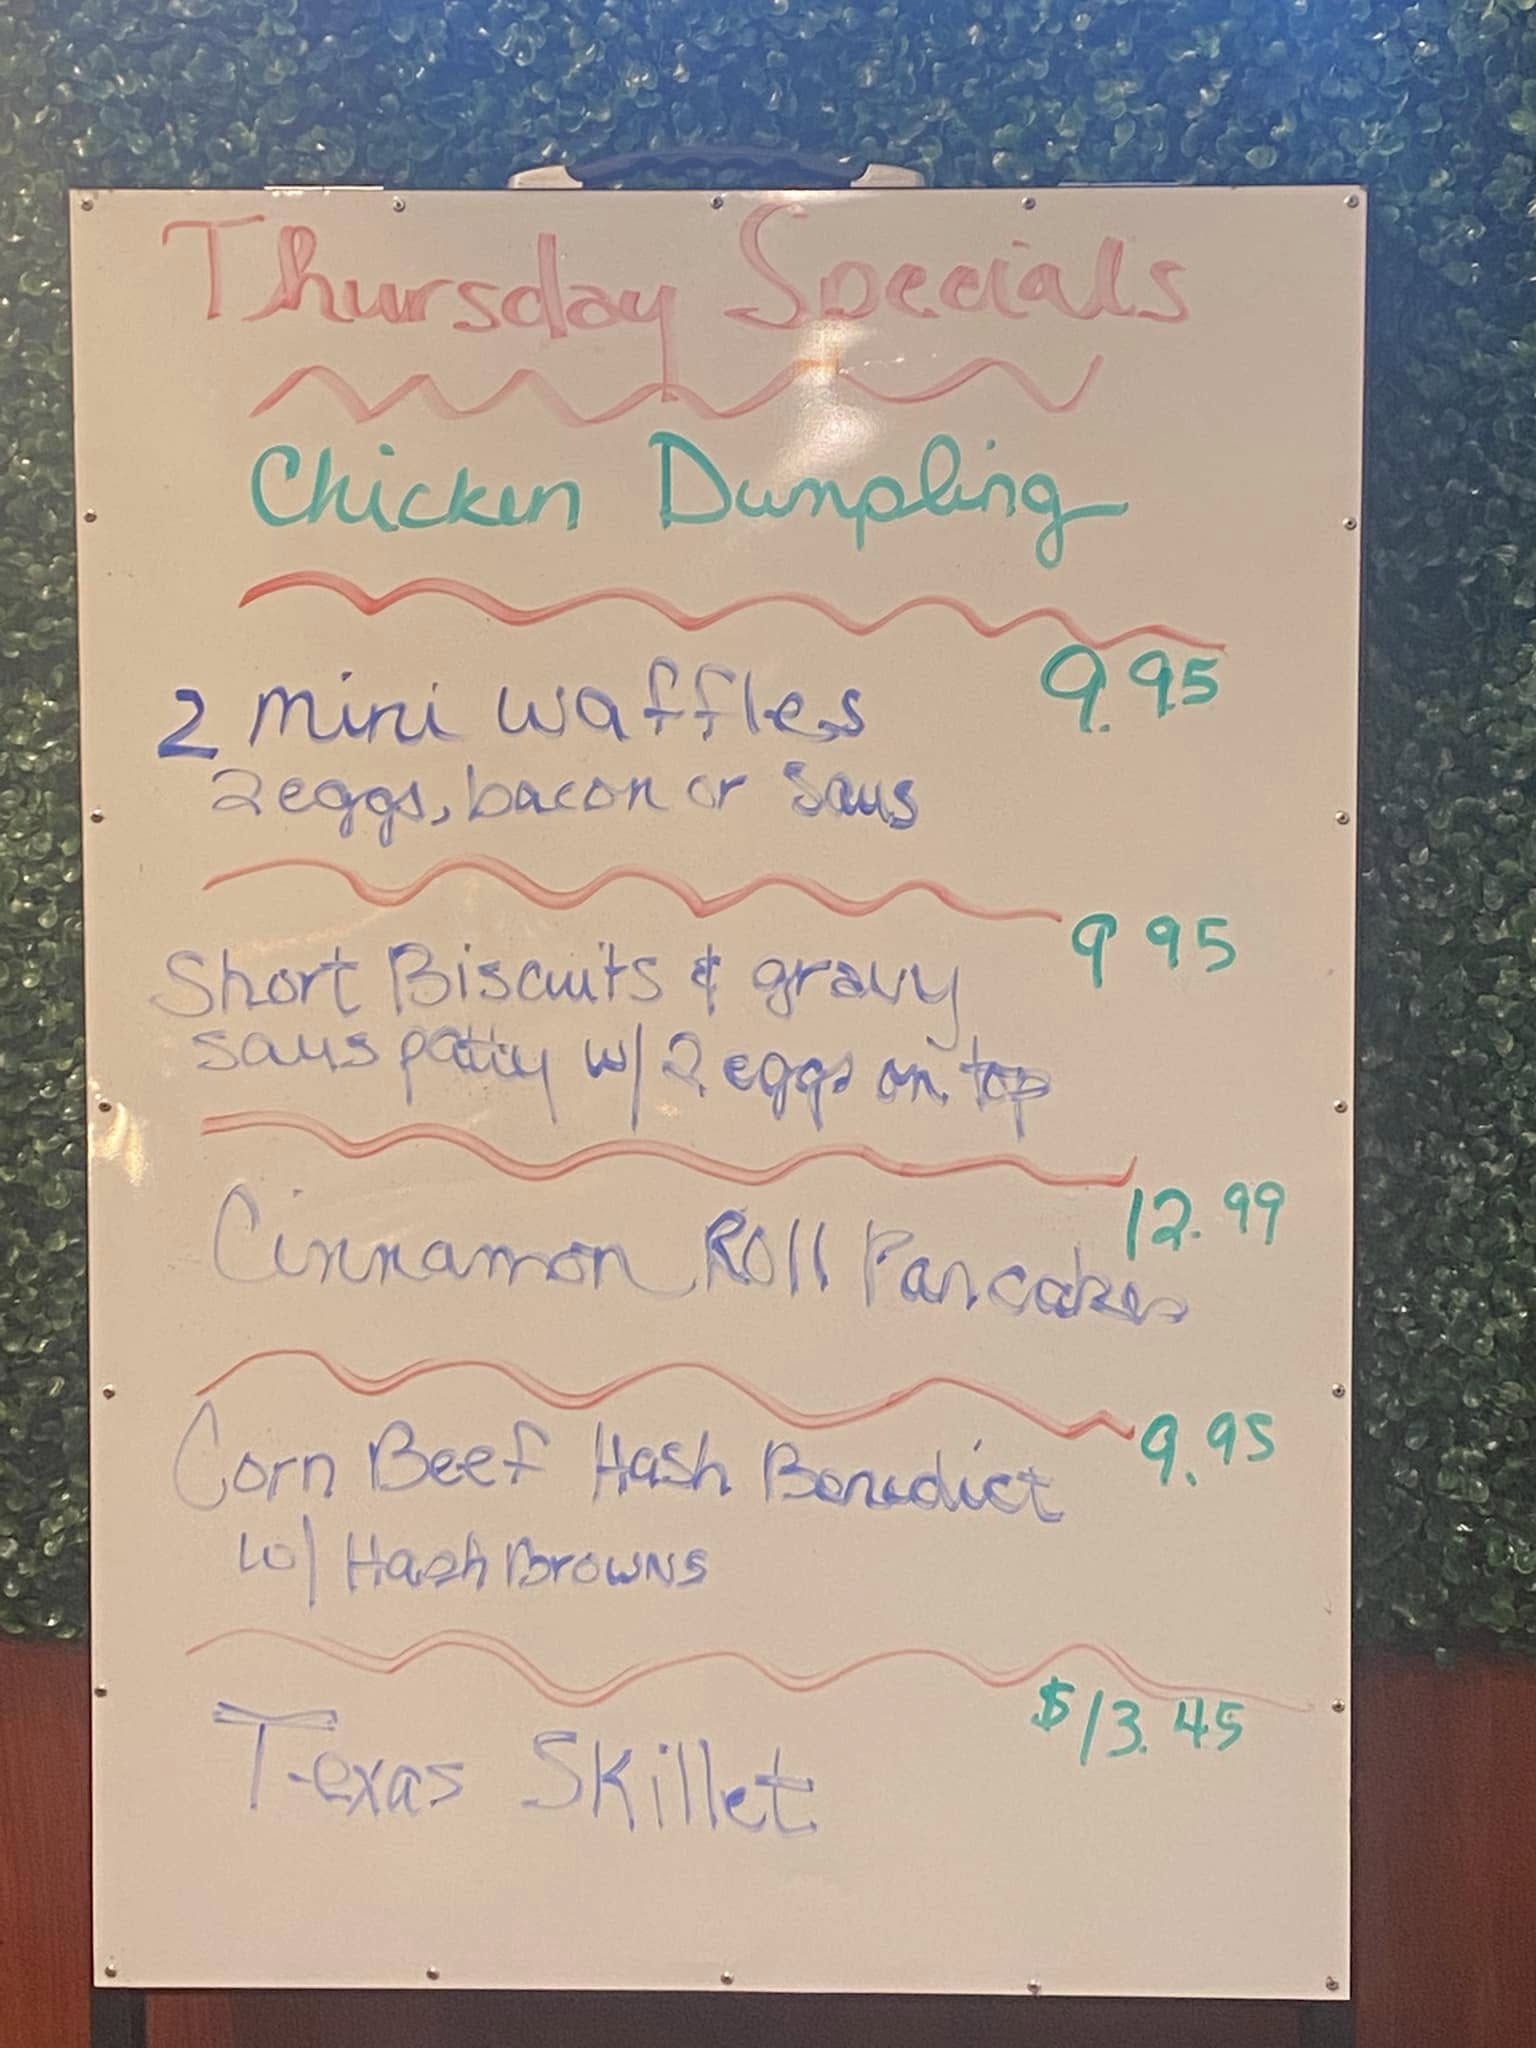 Thursday Specials
Chicken Dumpling
2 mini waffles 9.95
2 eggs, bacon or saus
Short Biscuits & gravy 9 95
saus patty w/ 2 eggs on top
Cinnamon Roll Pancakes 12.99
Corn Beef Hash Benedict 9.95
w/ Hash Browns
Texas Skillet $13.45